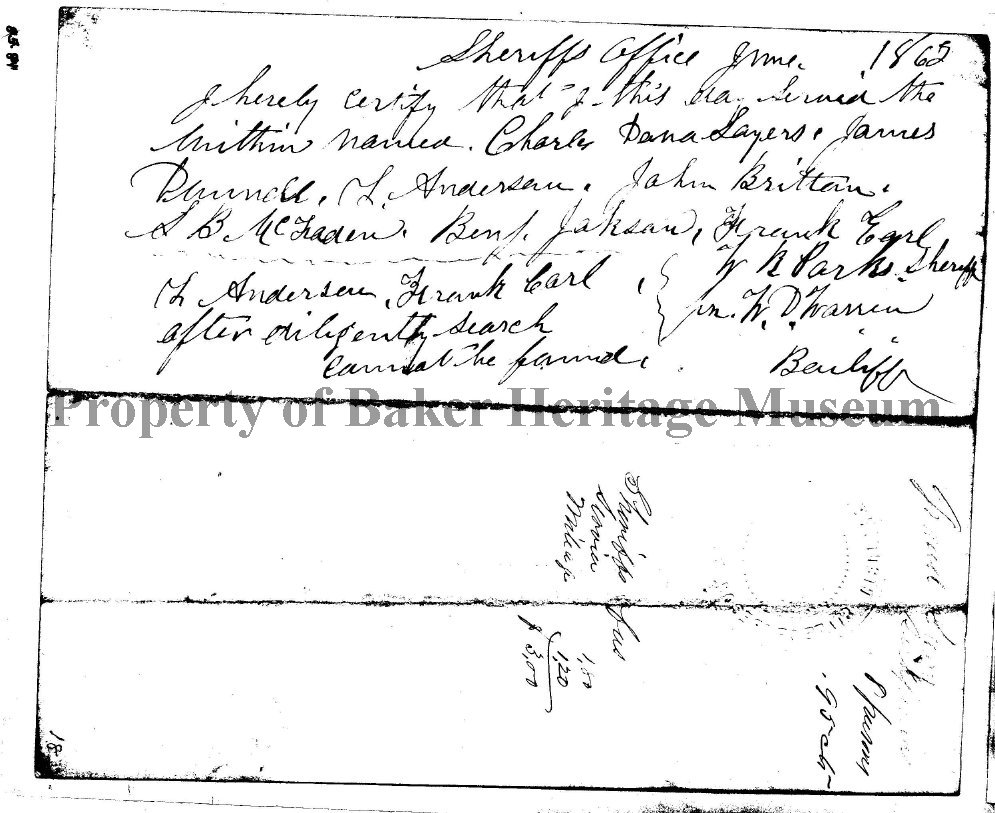 Sheriffs Office June. 1865
I hereby certify that I this da. Served the
Within named. Charles Dana Sayers. James
L. Anderson. John Britton.
S B McFaden. Benj. Jakson, Frank Earl
L Anderson, Frank Earl
after diligently search
cannot be found.
W R Parks. Sheriff
W. D. Warren
Bailiff
Property of Baker Heritage Museum
Sheriffs fees
Service 1,80
Mileage 1,20
$ 3,00
18